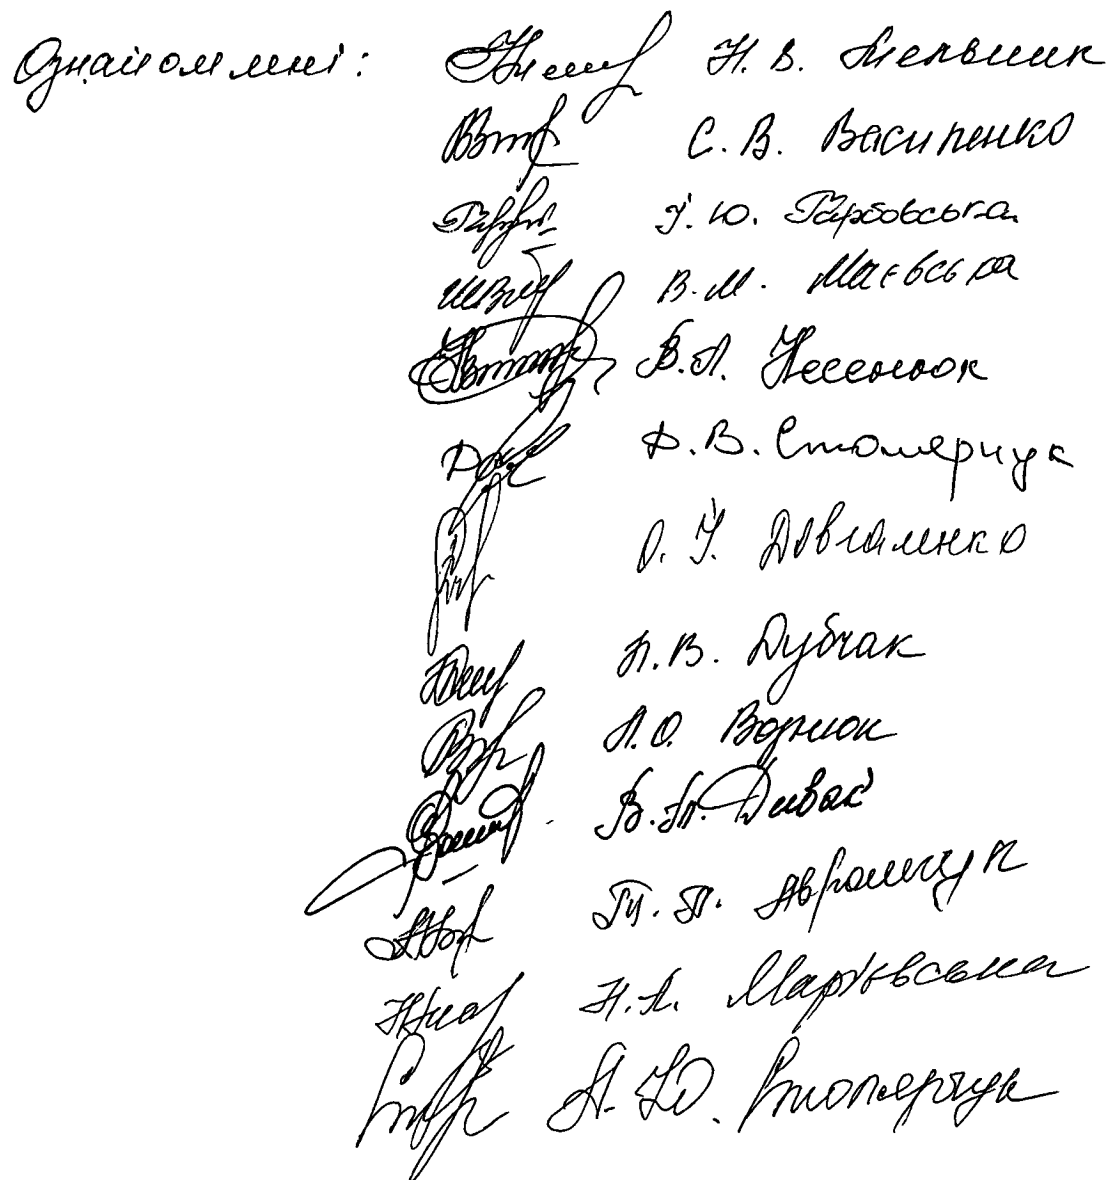 Ознайомлені: Н. В. Мельник
С. В. Василенко
І. Ю. Гарбовська
В. М. Маєвська
В. Л. Несенюк
Д. В. Столярчук
О. І. Довгаленко
Н. В. Дубчак
Л. О. Воднюк
В. П. Дивак
Т. П. Аврамчук
Н. А. Мар'євська
А. Ю. Столярчук